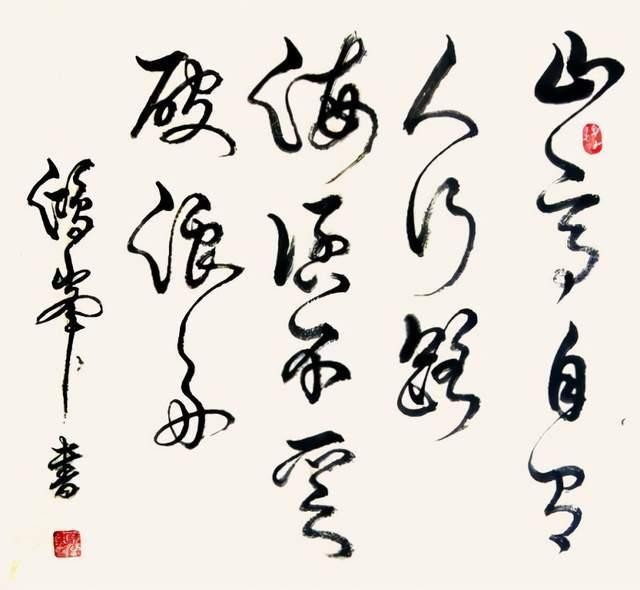 山高自有
人行路
海深不乏
破浪舟
鸿峰书